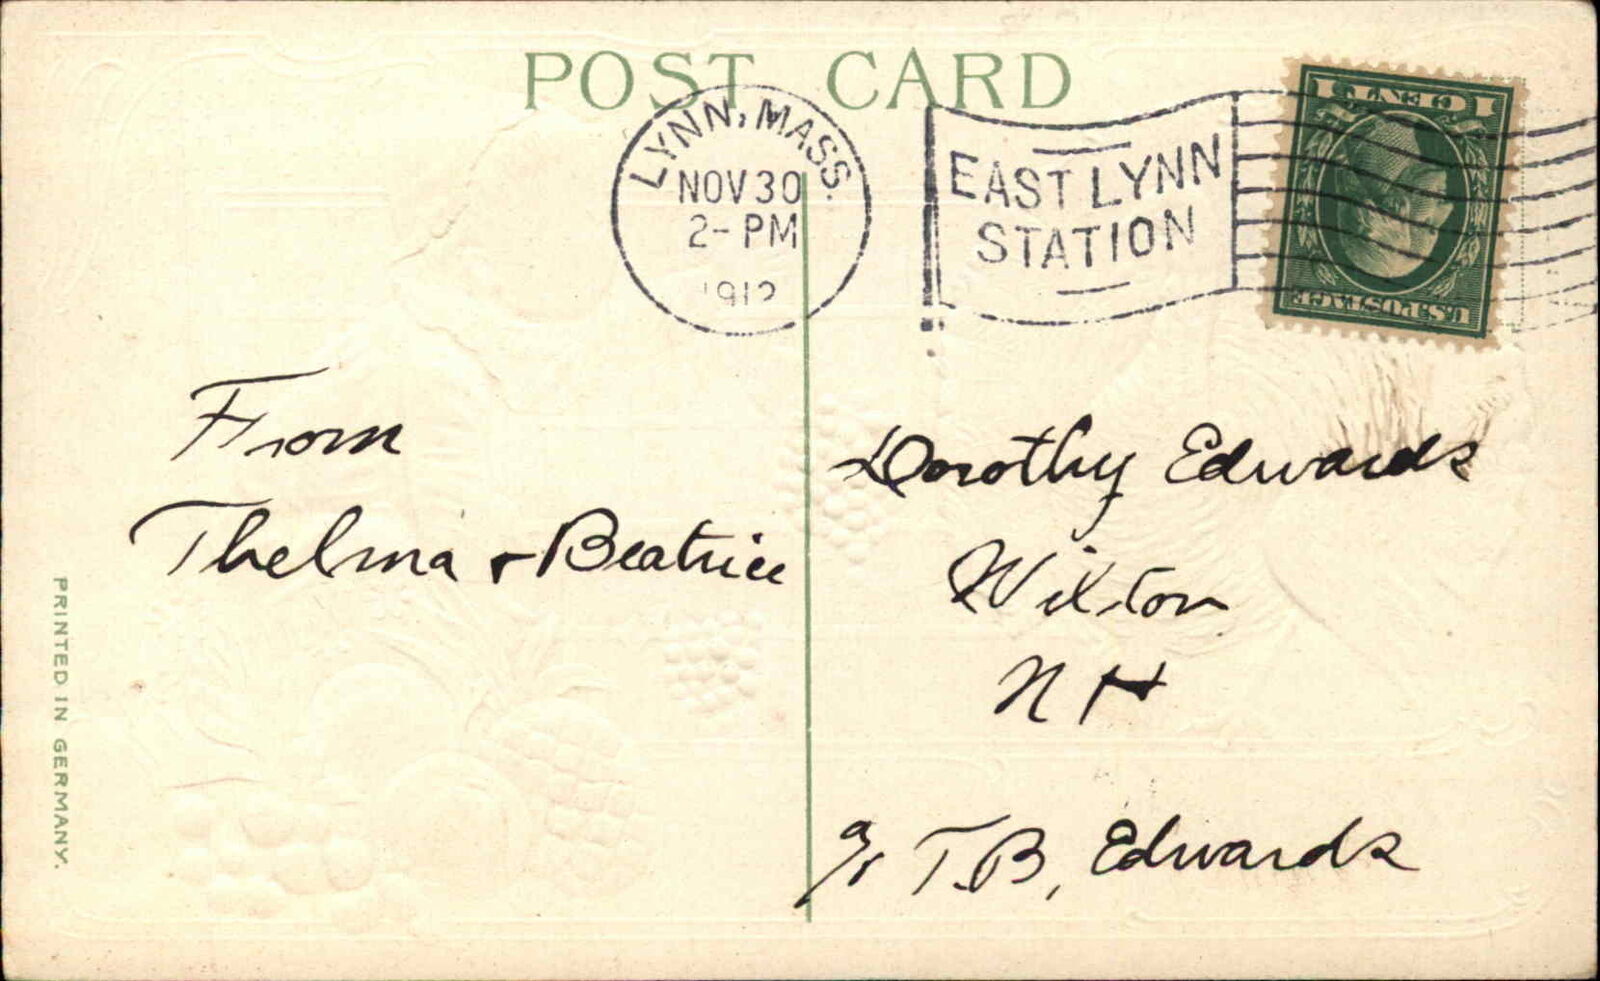 POST CARD
LYNN, MASS.
NOV 30
2- PM
1912
EAST LYNN
STATION
U.S. POSTAGE
1 CENT 1
From
Thelma + Beatrice
Dorothy Edwards
Wilton
N H
T.B. Edwards
PRINTED IN GERMANY.